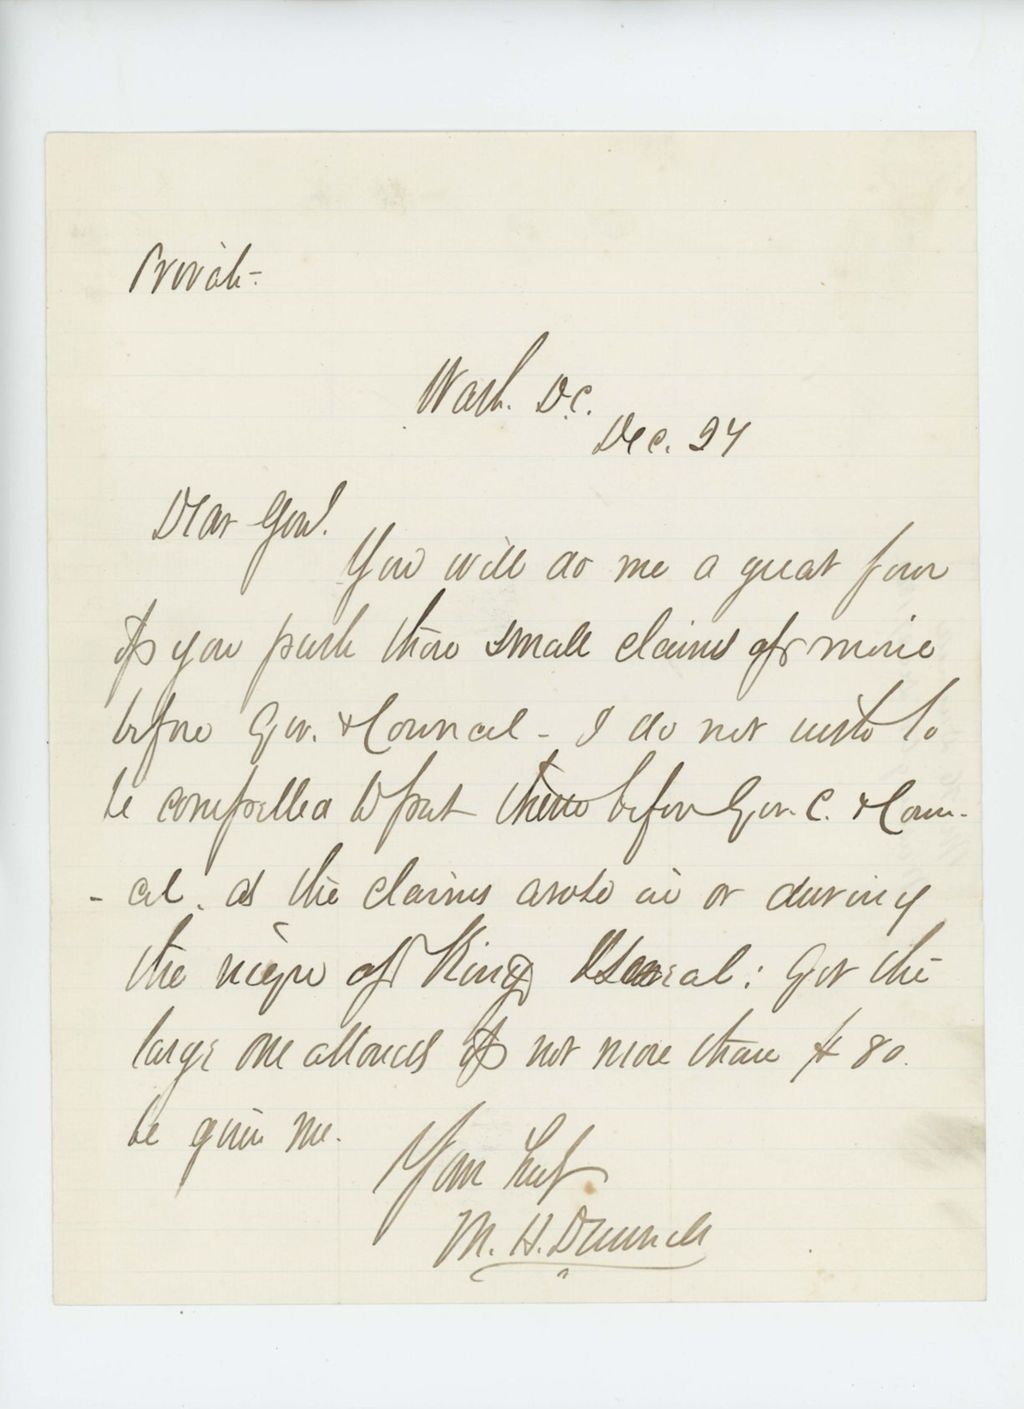 Private -
Wash. D.C.
Dec. 24
Dear Gov.
You will do me a great favor
if you push those small claims of mine
before Gov. & Council - I do not wish to
be compelled to put them before Gov. C. & Coun-
- cil. as the claims arose in or during
the reign of King : Get the
large one allowed if not more than $80.
be given me.
Your
M. H. Dunnell